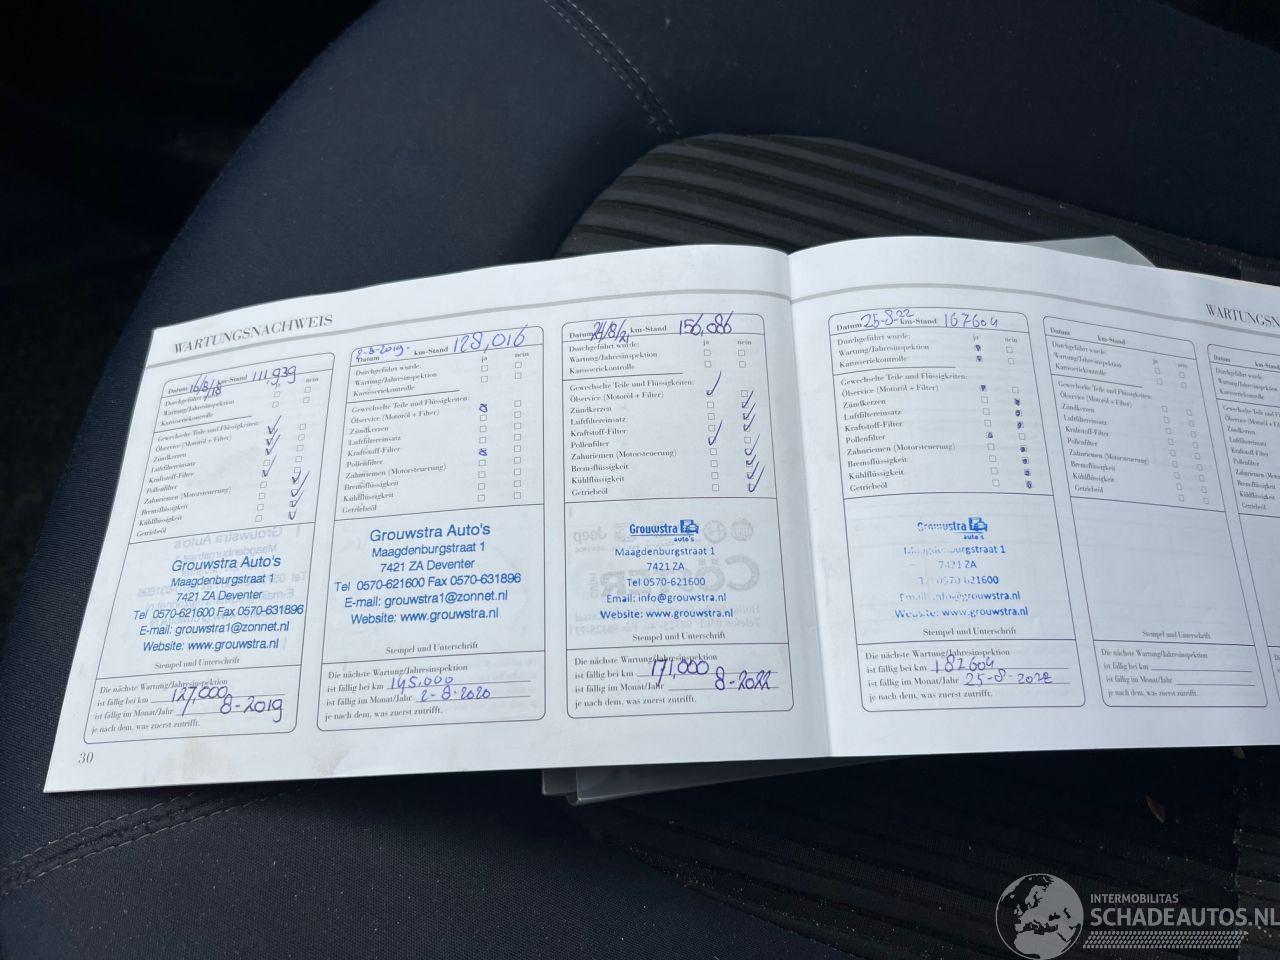 WARTUNGSNACHWEIS
Datum 16/8/18 km-Stand 111.939
Durchgeführt wurde: ja nein
Wartung/Jahresinspektion
Karosseriekontrolle
Gewechselte Teile und Flüssigkeiten:
Ölservice (Motoröl + Filter)
Zündkerzen
Luftfiltereinsatz
Kraftstoff-Filter
Pollenfilter
Zahnriemen (Motorsteuerung)
Bremsflüssigkeit
Kühlflüssigkeit
Getriebeöl
Grouwstra Auto's
Maagdenburgstraat 1
7421 ZA Deventer
Tel 0570-621600 Fax 0570-631896
E-mail: grouwstra1@zonnet.nl
Website: www.grouwstra.nl
Stempel und Unterschrift
Die nächste Wartung/Jahresinspektion
ist fällig bei km 127,000
ist fällig im Monat/Jahr 8-2019
je nach dem, was zuerst zutrifft.
30
2-8-2019.
Datum km-Stand 128,016
Durchgeführt wurde: ja nein
Wartung/Jahresinspektion
Karosseriekontrolle
Gewechselte Teile und Flüssigkeiten:
Ölservice (Motoröl + Filter)
Zündkerzen
Luftfiltereinsatz
Kraftstoff-Filter
Pollenfilter
Zahnriemen (Motorsteuerung)
Bremsflüssigkeit
Kühlflüssigkeit
Getriebeöl
Grouwstra Auto's
Maagdenburgstraat 1
7421 ZA Deventer
Tel 0570-621600 Fax 0570-631896
E-mail: grouwstra1@zonnet.nl
Website: www.grouwstra.nl
Stempel und Unterschrift
Die nächste Wartung/Jahresinspektion
ist fällig bei km 145.000
ist fällig im Monat/Jahr 2-8-2020
je nach dem, was zuerst zutrifft.
Datum 24/8/21 km-Stand 156,086
Durchgeführt wurde: ja nein
Wartung/Jahresinspektion
Karosseriekontrolle
Gewechselte Teile und Flüssigkeiten:
Ölservice (Motoröl + Filter)
Zündkerzen
Luftfiltereinsatz
Kraftstoff-Filter
Pollenfilter
Zahnriemen (Motorsteuerung)
Bremsflüssigkeit
Kühlflüssigkeit
Getriebeöl
Grouwstra
auto's
Maagdenburgstraat 1
7421 ZA
Tel 0570-621600
Email: info@grouwstra.nl
Website: www.grouwstra.nl
Stempel und Unterschrift
Die nächste Wartung/Jahresinspektion
ist fällig bei km 171,000
ist fällig im Monat/Jahr 8-2022
je nach dem, was zuerst zutrifft.
WARTUNGSN
Datum 25-8-22 km-Stand 167604
Durchgeführt wurde: ja nein
Wartung/Jahresinspektion
Karosseriekontrolle
Gewechselte Teile und Flüssigkeiten:
Ölservice (Motoröl + Filter)
Zündkerzen
Luftfiltereinsatz
Kraftstoff-Filter
Pollenfilter
Zahnriemen (Motorsteuerung)
Bremsflüssigkeit
Kühlflüssigkeit
Getriebeöl
Grouwstra
auto's
Maagdenburgstraat 1
7421 ZA
Tel 0570-621600
Email: info@grouwstra.nl
Website: www.grouwstra.nl
Stempel und Unterschrift
Die nächste Wartung/Jahresinspektion
ist fällig bei km 182604
ist fällig im Monat/Jahr 25-8-202
je nach dem, was zuerst zutrifft.
Datum km-Stand
Durchgeführt wurde: ja nein
Wartung/Jahresinspektion
Karosseriekontrolle
Gewechselte Teile und Flüssigkeiten:
Ölservice (Motoröl + Filter)
Zündkerzen
Luftfiltereinsatz
Kraftstoff-Filter
Pollenfilter
Zahnriemen (Motorsteuerung)
Bremsflüssigkeit
Kühlflüssigkeit
Getriebeöl
Stempel und Unterschrift
Die nächste Wartung/Jahresinspektion
ist fällig bei km
ist fällig im Monat/Jahr
je nach dem, was zuerst zutrifft.
Datum
Durchgeführt
Wartung/Jahresins
Karosseriekontroll
Gewechselte Teile und Fl
Ölservice (Motoröl + Fi
Zündkerzen
Luftfiltereinsatz
Kraftstoff-Filter
Pollenfilter
Zahnriemen (Motors
Bremsflüssigkeit
Kühlflüssigkeit
Getriebeöl
Die nächste
ist fällig
ist fällig
je nach
INTERMOBILITAS
SCHADEAUTOS.NL